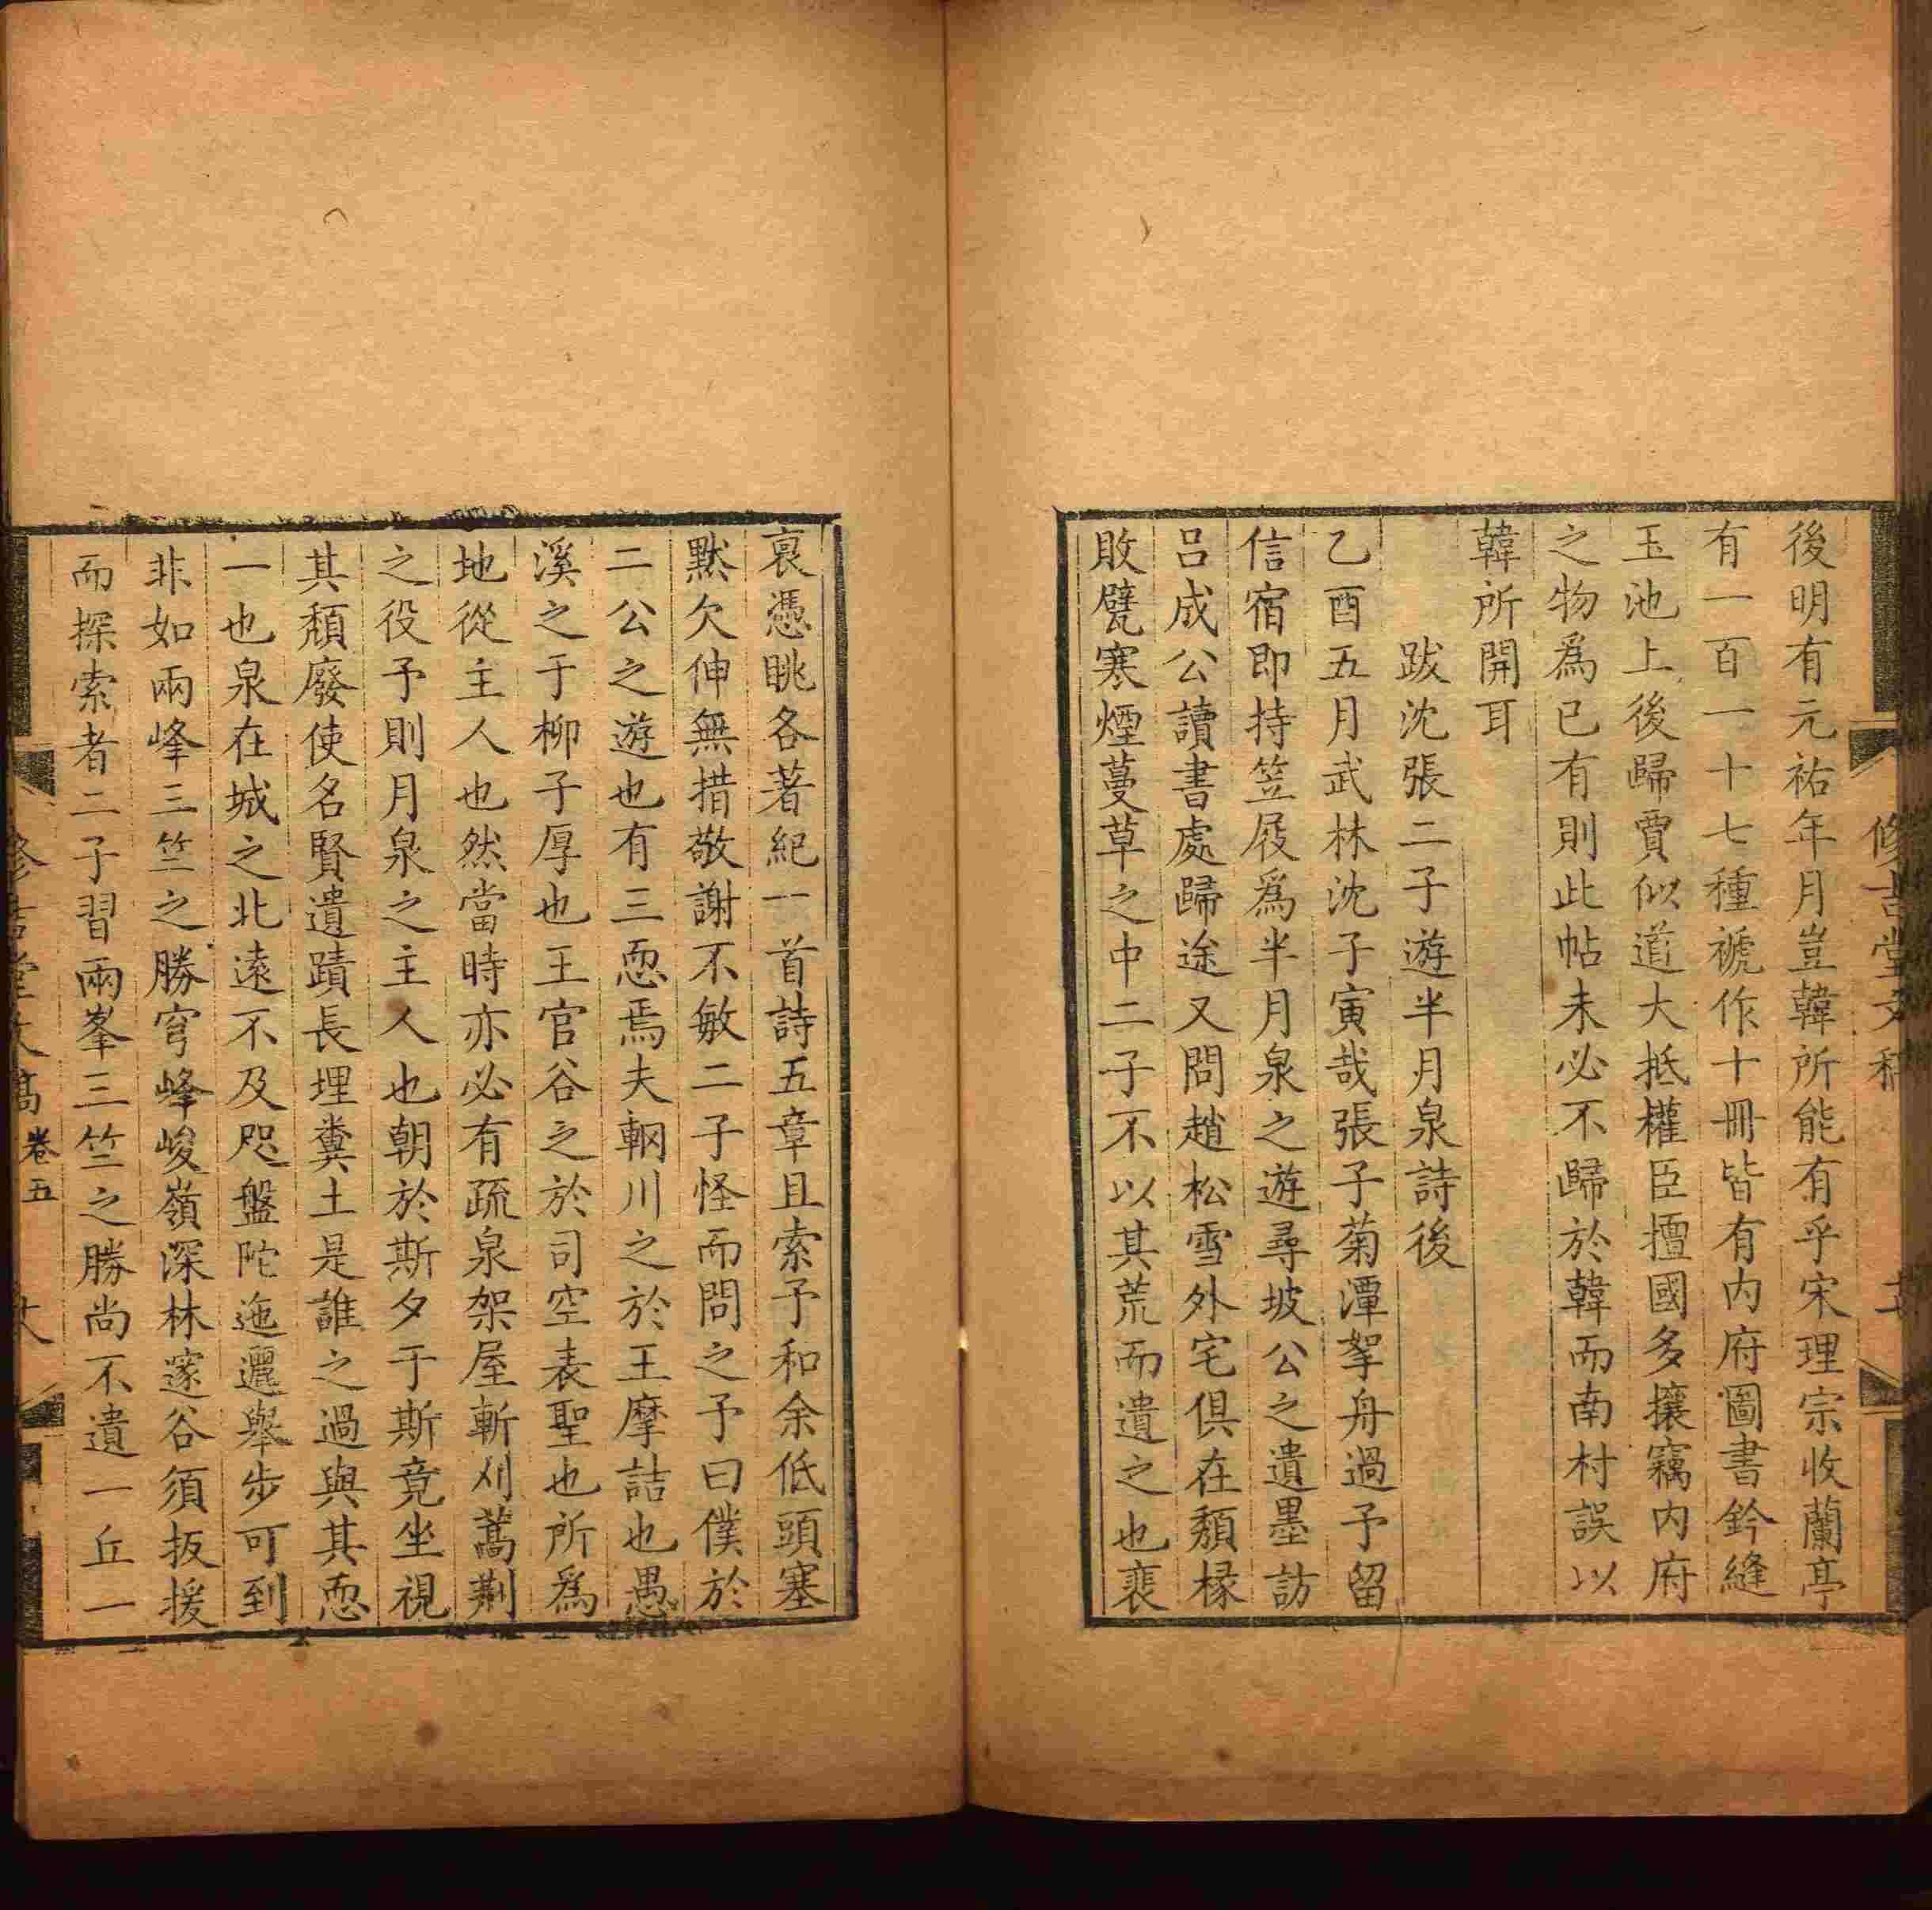 後明有元祐年月豈韓所能有乎宋理宗收蘭亭
有一百一十七種褫作十冊皆有内府圖書鈐縫
玉池上後歸賈似道大抵權臣擅國多攘竊内府
之物爲已有則此帖未必不歸於韓而南村誤以
韓所開耳
跋沈張二子遊半月泉詩後
乙酉五月武林沈子寅哉張子菊潭挐舟過予留
信宿即持笠屐爲半月泉之遊尋坡公之遺墨訪
呂成公讀書處歸途又問趙松雪外宅俱在頽椽
敗甓寒煙蔓草之中二子不以其荒而遺之也裵
裒憑眺各著紀一首詩五章且索予和余低頭塞
默欠伸無措敬謝不敏二子怪而問之予曰僕於
二公之遊也有三恧焉夫輞川之於王摩詰也愚
溪之于柳子厚也王官谷之於司空表聖也所爲
地從主人也然當時亦必有疏泉架屋斬刈蒿荆
之役予則月泉之主人也朝於斯夕于斯竟坐視
其頽廢使名賢遺蹟長埋糞土是誰之過與其恧
一也泉在城之北遠不及咫盤陀迤邐舉步可到
非如兩峰三竺之勝穹峰峻嶺深林邃谷須扳援
而探索者二子習兩峯三竺之勝尚不遺一丘一
卷五